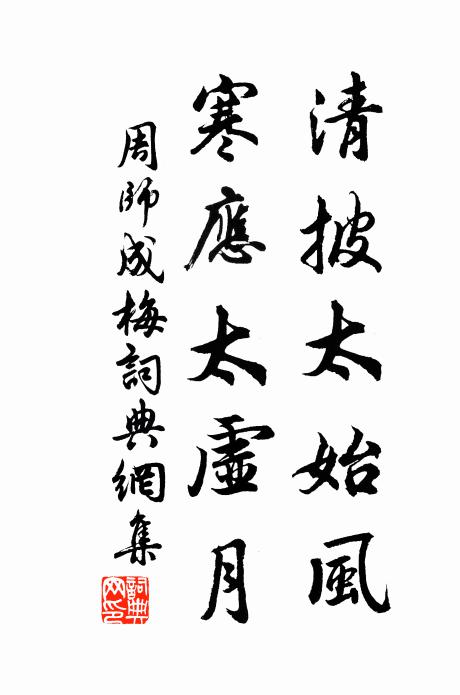 清披太始風
寒應太虛月
周師成梅詞典網集
詞典網印